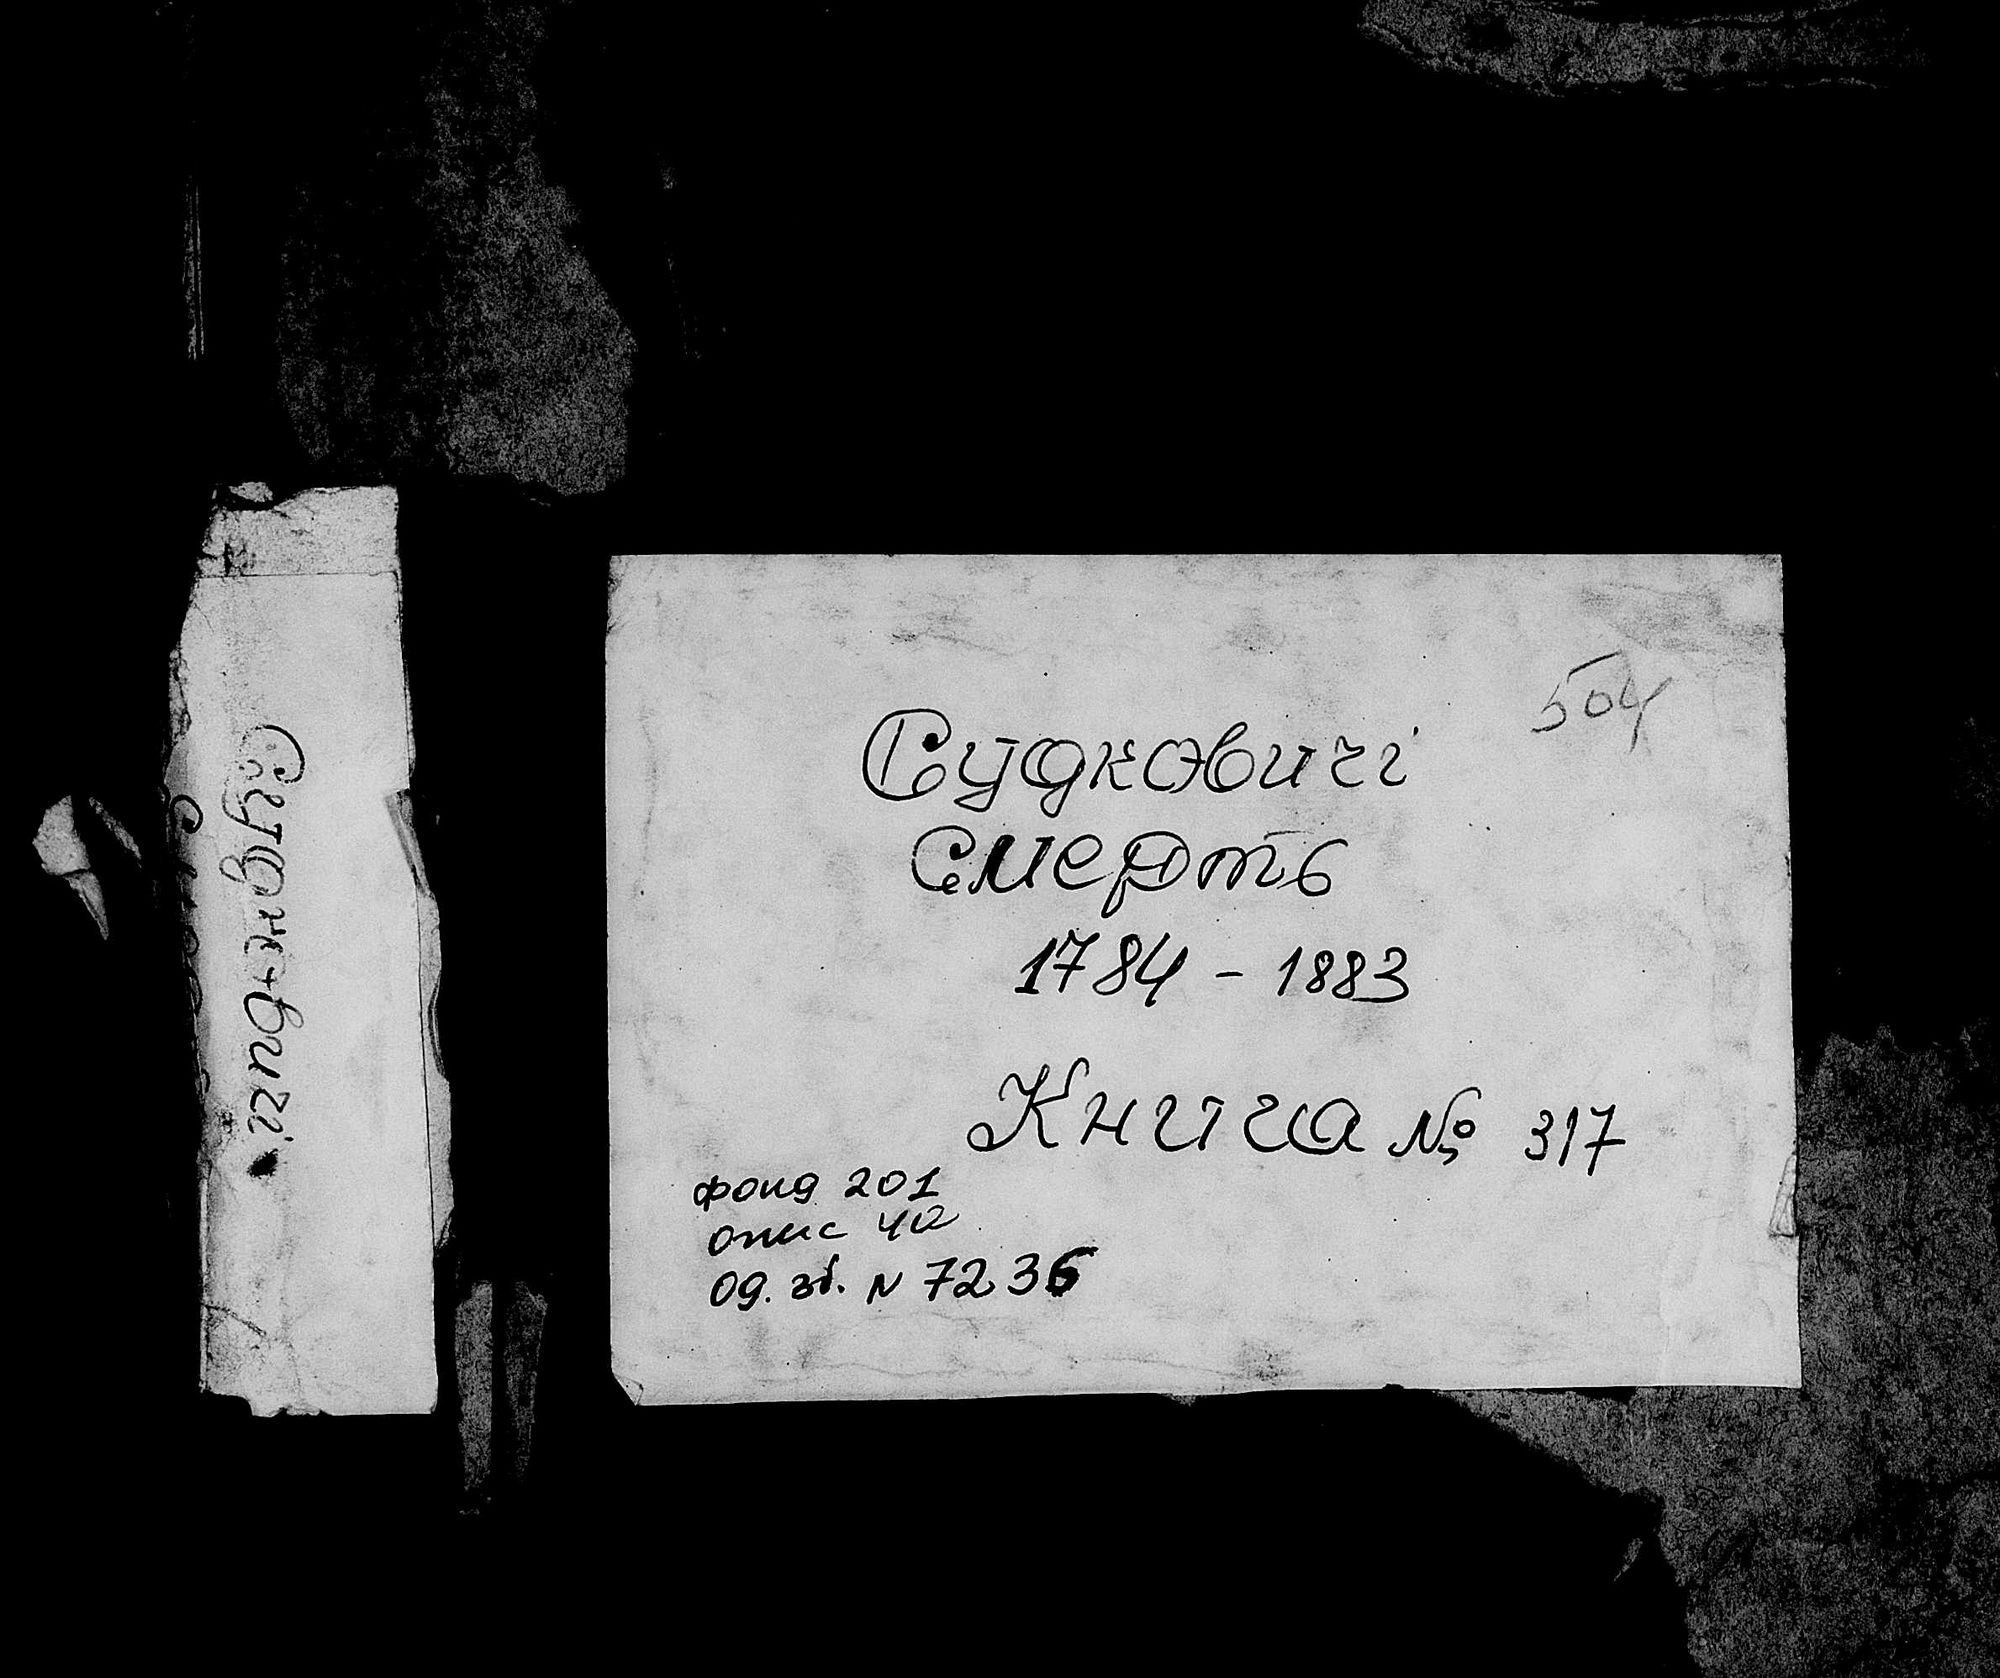 Судковичі
Смерть
504
Судковичі
Смерть
1784 - 1883
Книга № 317
фонд 201
опис 4а
од. зб. N 7236